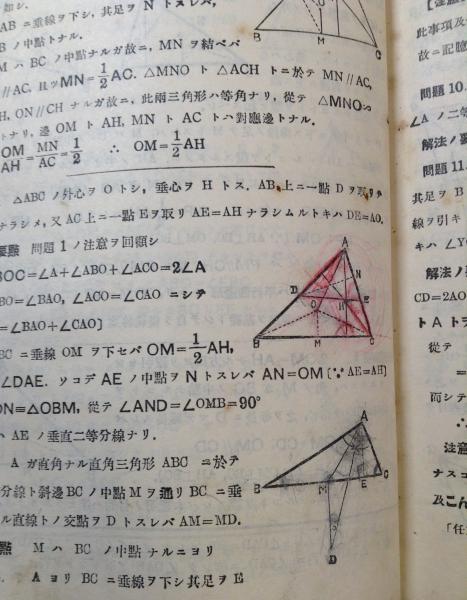 AB ニ垂線ヲ下シ, 其足ヲ N トスレバ,
ノ中點トナル.
M ハ BC ノ中點ナルガ故ニ, MN ヲ結ベバ
//AC, 且ツ MN=1/2AC. △MNO ト △ACH トニ於テ MN//AC,
H, ON//CH ナルガ故ニ, 此兩三角形ハ等角ナリ, 從テ △MNO∽
トナリ, 邊 OM ト AH, MN ト AC トハ對應邊トナル.
OM/AH=MN/AC=1/2 ∴ OM=1/2AH
△ABC ノ外心ヲ O トシ, 垂心ヲ H トス. AB 上ニ一點 D ヲ取リ
ナラシメ, 又 AC 上ニ一點 E ヲ取リ AE=AH ナラシムルトキハ DE=AO.
問題 1 ノ注意ヲ回顧シ
BOC=∠A+∠ABO+∠ACO=2∠A
BO=∠BAO, ∠ACO=∠CAO ニシテ
=∠BAO+∠CAO]
BC ニ垂線 OM ヲ下セバ OM=1/2AH,
∠DAE. ソコデ AE ノ中點ヲ N トスレバ AN=OM [∵AE=AH]
ON≡△OBM, 從テ ∠AND=∠OMB=90°
ハ AE ノ垂直二等分線ナリ.
A ガ直角ナル直角三角形 ABC ニ於テ
分線ト斜邊 BC ノ中點 M ヲ通リ BC ニ垂
ル直線トノ交點ヲ D トスレバ AM=MD.
M ハ BC ノ中點ナルニヨリ
A ヨリ BC ニ垂線ヲ下シ其足ヲ E
B
M
C
A
D
N
O
H
E
B
M
C
A
B
M
E
C
D
此事項及
故ニ記憶
問題 10.
∠A ノ二等
解法ノ要
問題 11.
其足ヲ B
線ヲ引キ
キハ ∠Y
解法ノ
CD=2AO
ト A トヲ
從テ
=
而シテ
∴
注意
ナスコ
及こん
「任